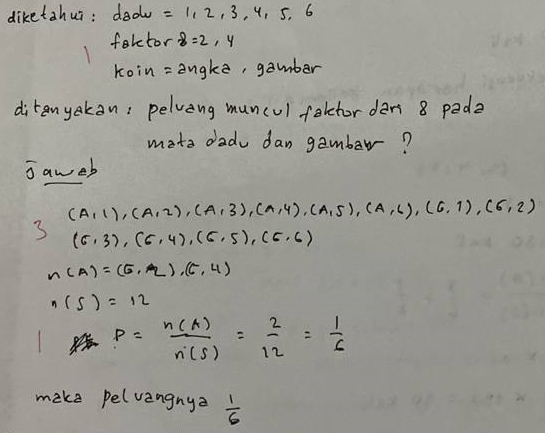 diketahui : dadu = 1, 2, 3, 4, 5, 6
1 faktor 8 = 2, 4
koin = angka, gambar
ditanyakan : peluang muncul faktor dari 8 pada
mata dadu dan gambar ?
Jawab
3 (A,1), (A,2), (A,3), (A,4), (A,5), (A,6), (G,1), (G,2)
(G,3), (G,4), (G,5), (G,6)
n(A) = (G,2), (G,4)
n(S) = 12
1 P = n(A)/n(S) = 2/12 = 1/6
maka peluangnya 1/6